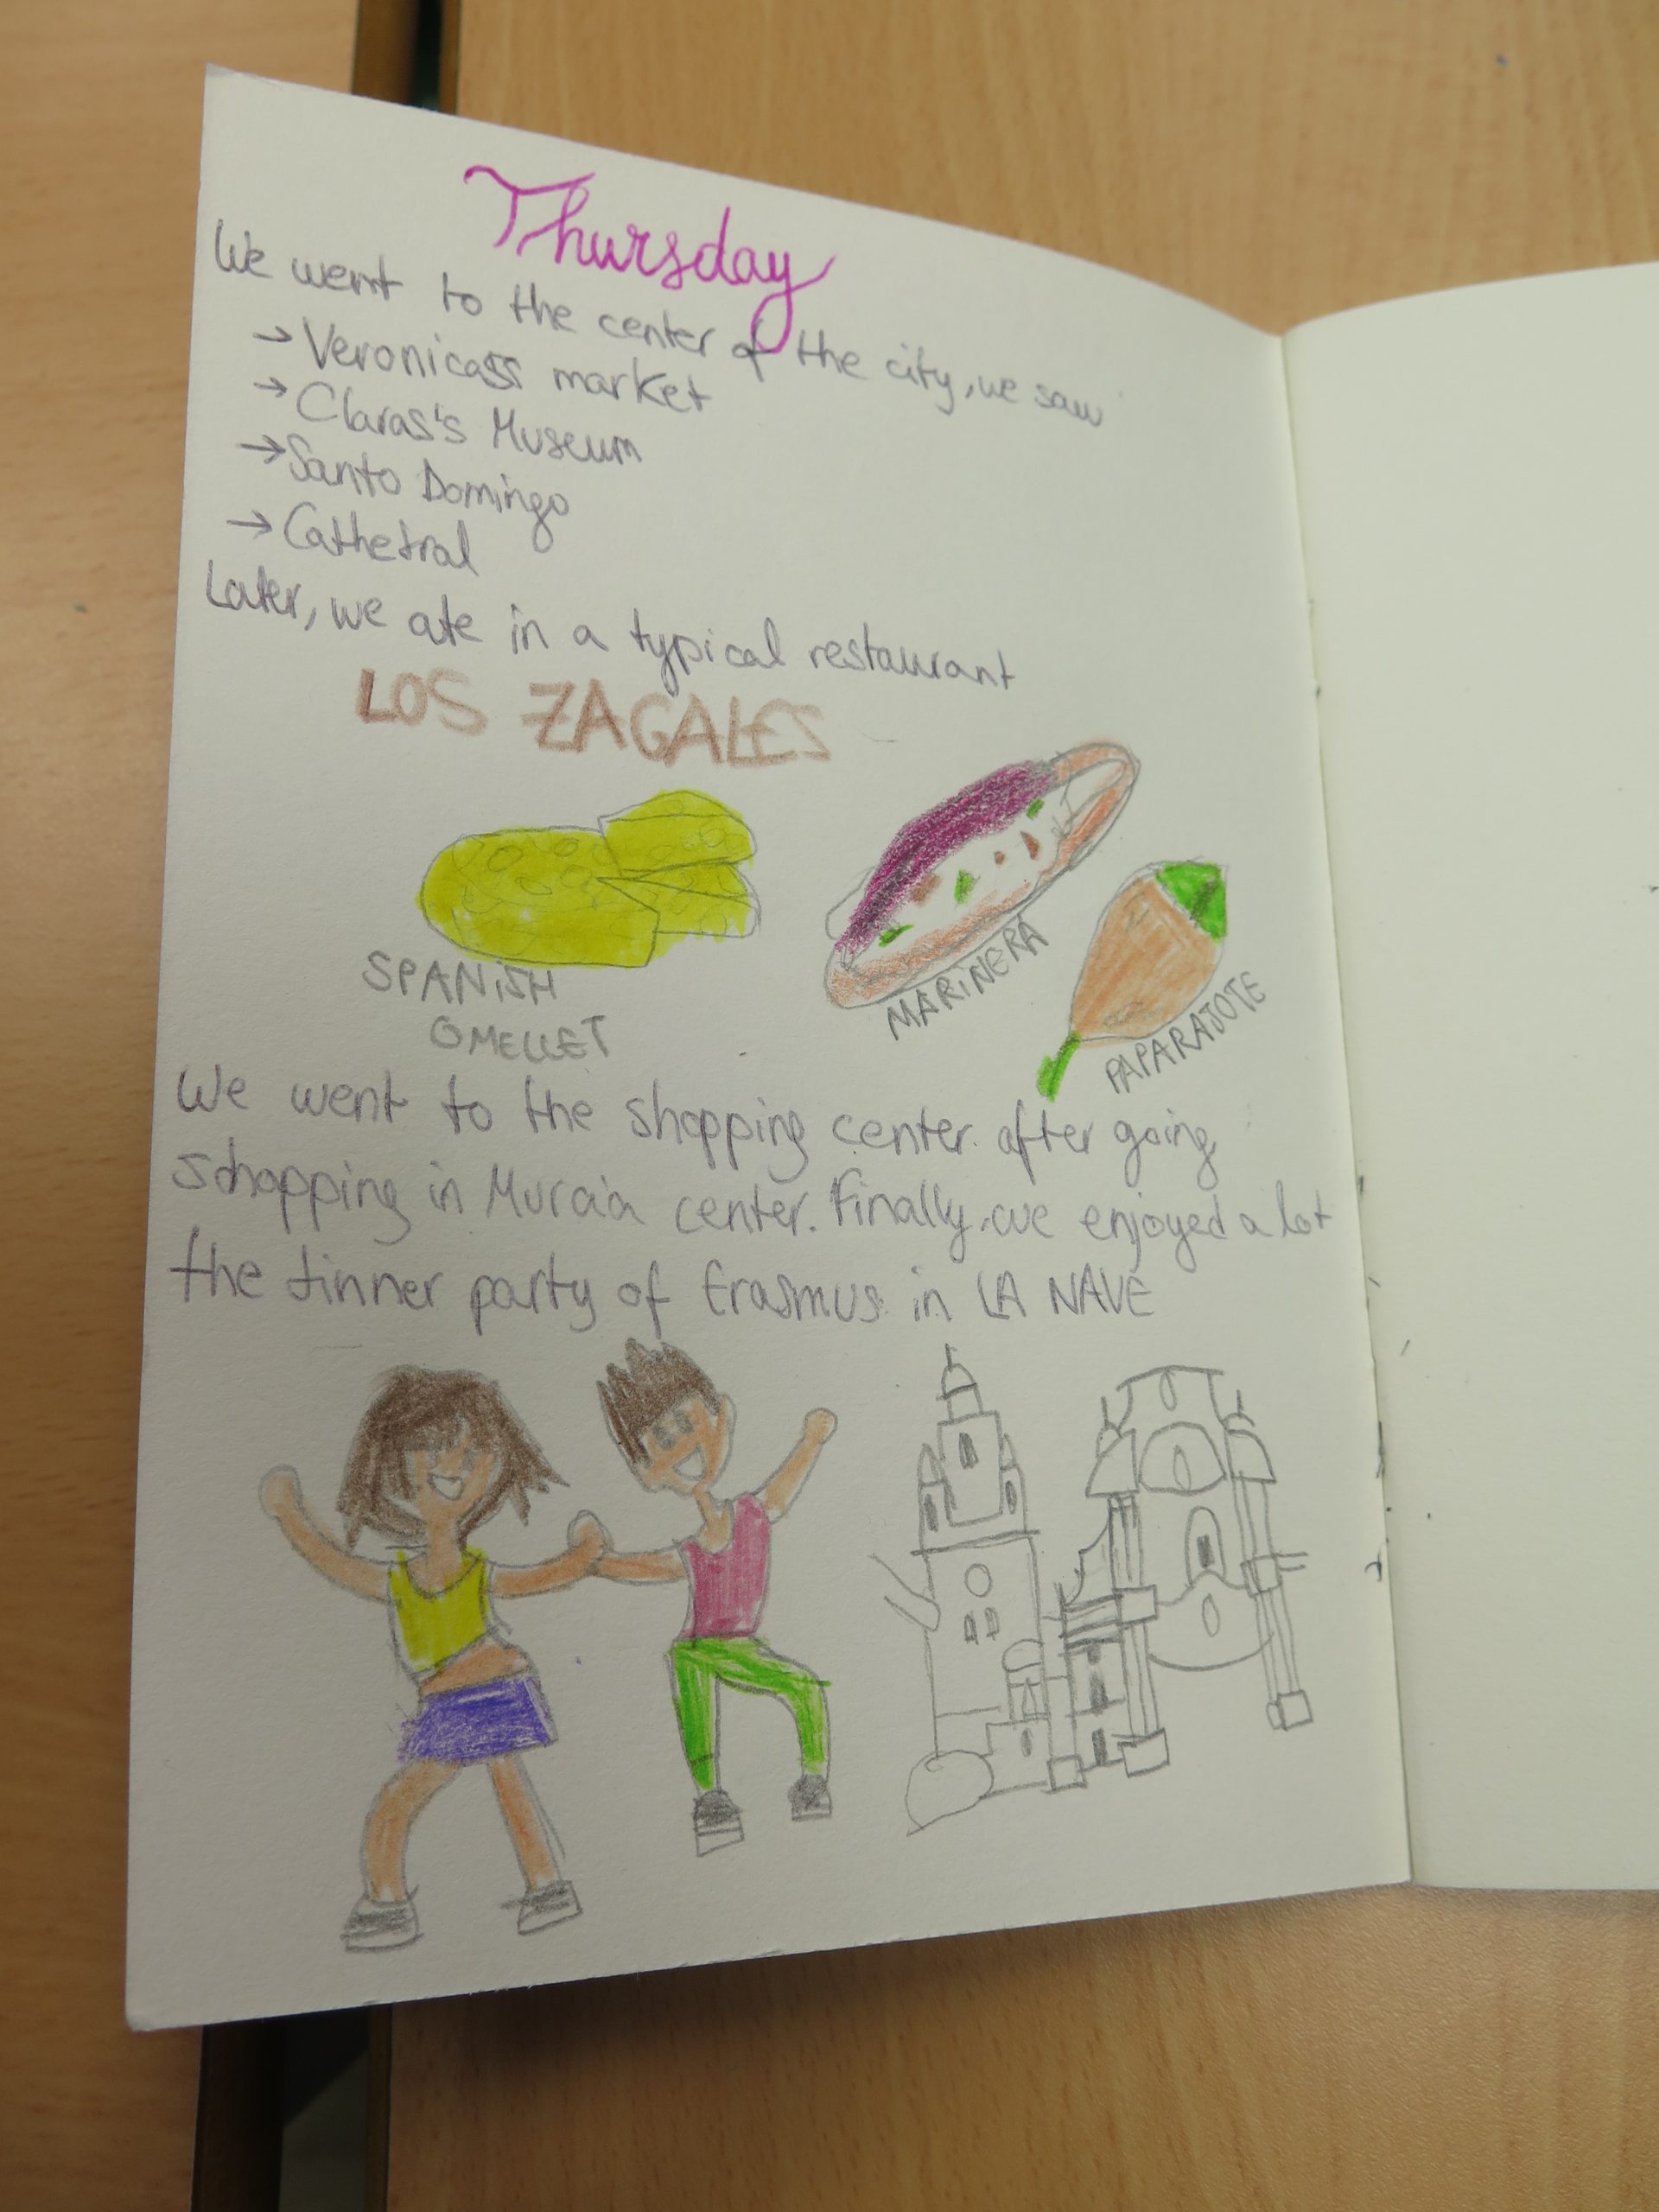 Thursday
We went to the center of the city, we saw
→ Veronicass market
→ Claras's Museum
→ Santo Domingo
→ Cathetral
Later, we ate in a typical restaurant
LOS ZAGALES
SPANiSH
OMELLET
MARiNERA
PAPARAJOTE
We went to the shopping center. after going
schopping in Murcia center. Finally, we enjoyed a lot
the tinner party of Erasmus in LA NAVE